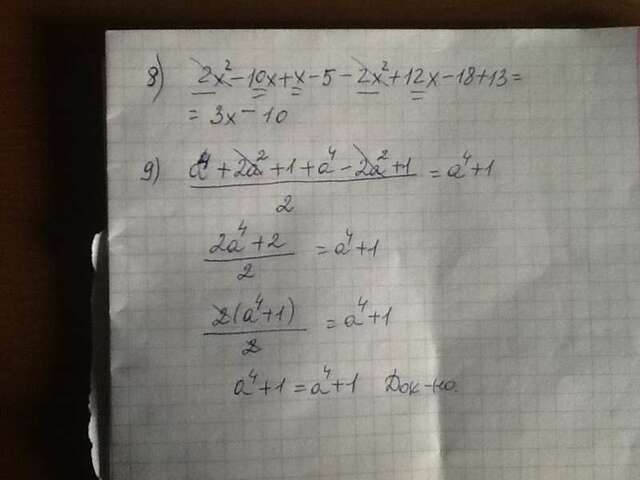 8) 2x² - 10x + x - 5 - 2x² + 12x - 18 + 13 =
= 3x - 10
9) (a⁴ + 2a² + 1 + a⁴ - 2a² + 1) / 2 = a⁴ + 1
(2a⁴ + 2) / 2 = a⁴ + 1
2(a⁴ + 1) / 2 = a⁴ + 1
a⁴ + 1 = a⁴ + 1 Док-но.